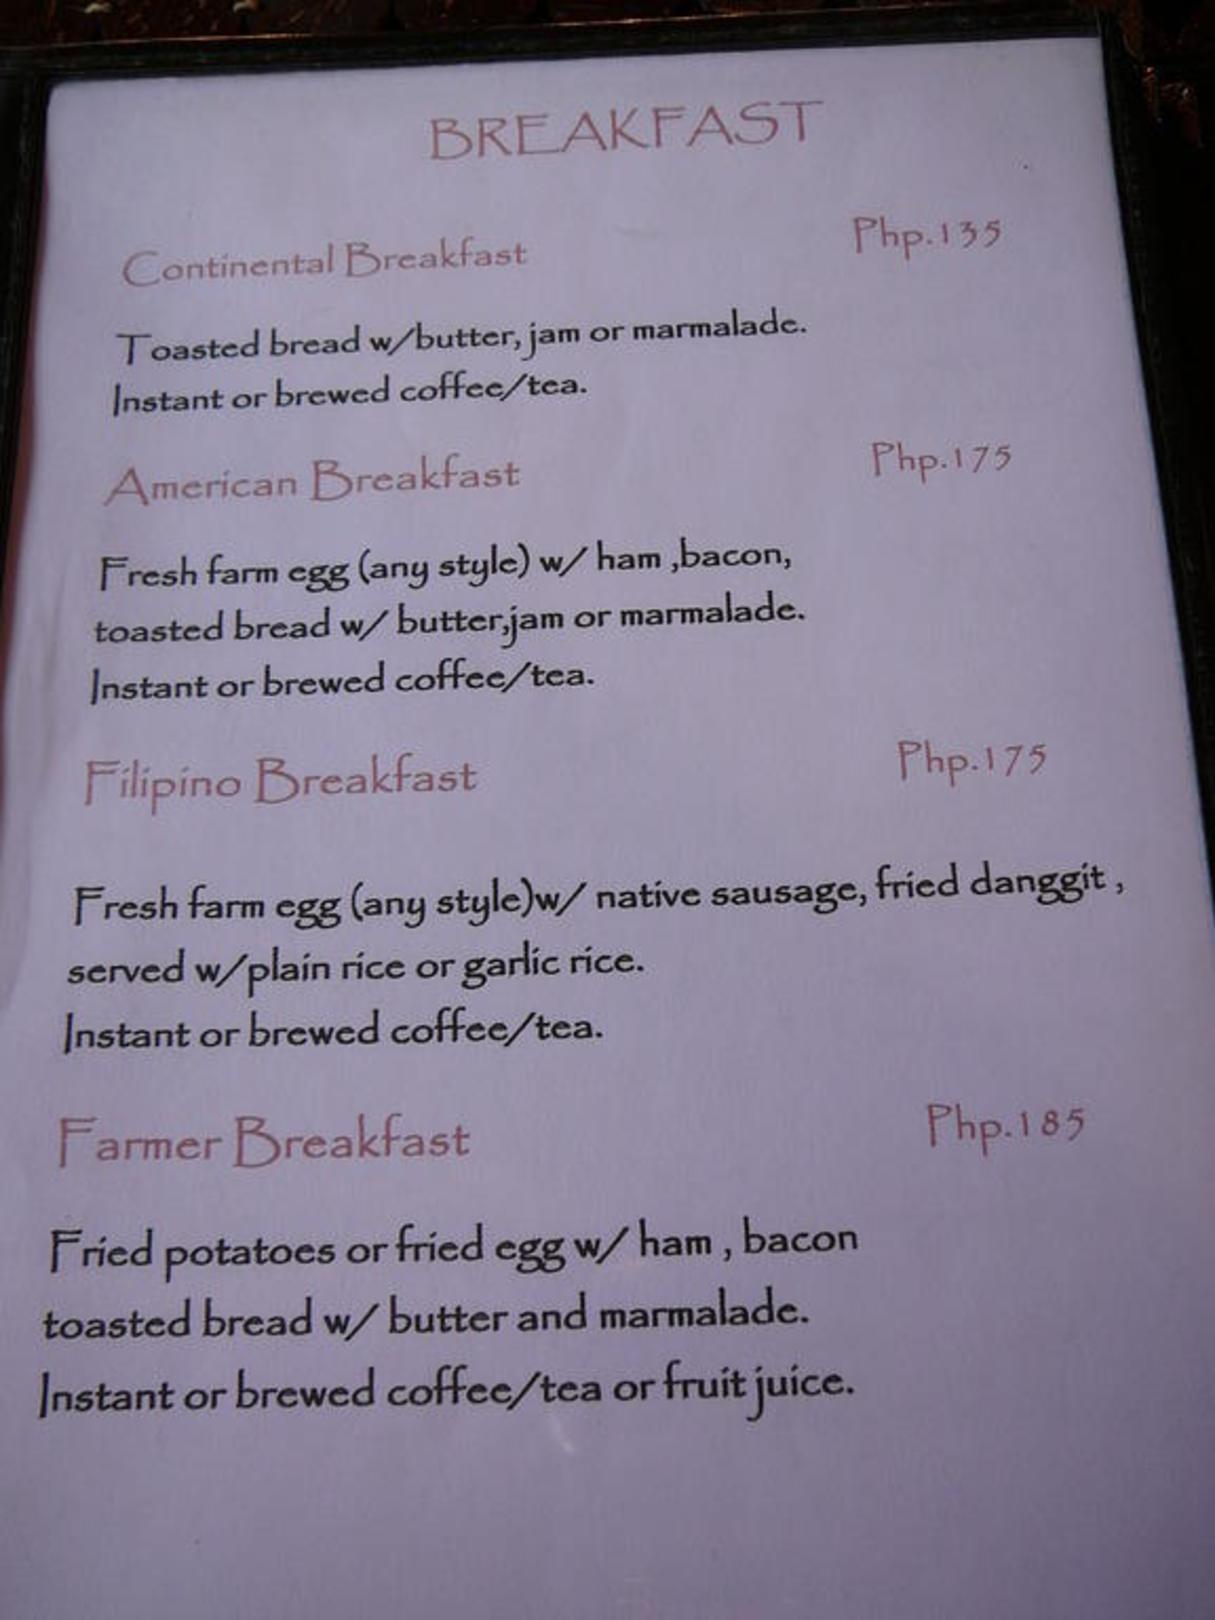 BREAKFAST
Continental Breakfast Php.135
Toasted bread w/butter, jam or marmalade.
Instant or brewed coffee/tea.
American Breakfast Php.175
Fresh farm egg (any style) w/ ham ,bacon,
toasted bread w/ butter,jam or marmalade.
Instant or brewed coffee/tea.
Filipino Breakfast Php.175
Fresh farm egg (any style)w/ native sausage, fried danggit ,
served w/plain rice or garlic rice.
Instant or brewed coffee/tea.
Farmer Breakfast Php.185
Fried potatoes or fried egg w/ ham , bacon
toasted bread w/ butter and marmalade.
Instant or brewed coffee/tea or fruit juice.